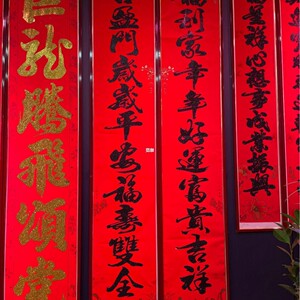 呈祥心想事成業振興
福到家年年好運富貴吉祥
喜盈門歲歲平安福壽雙全
龍騰飛頌